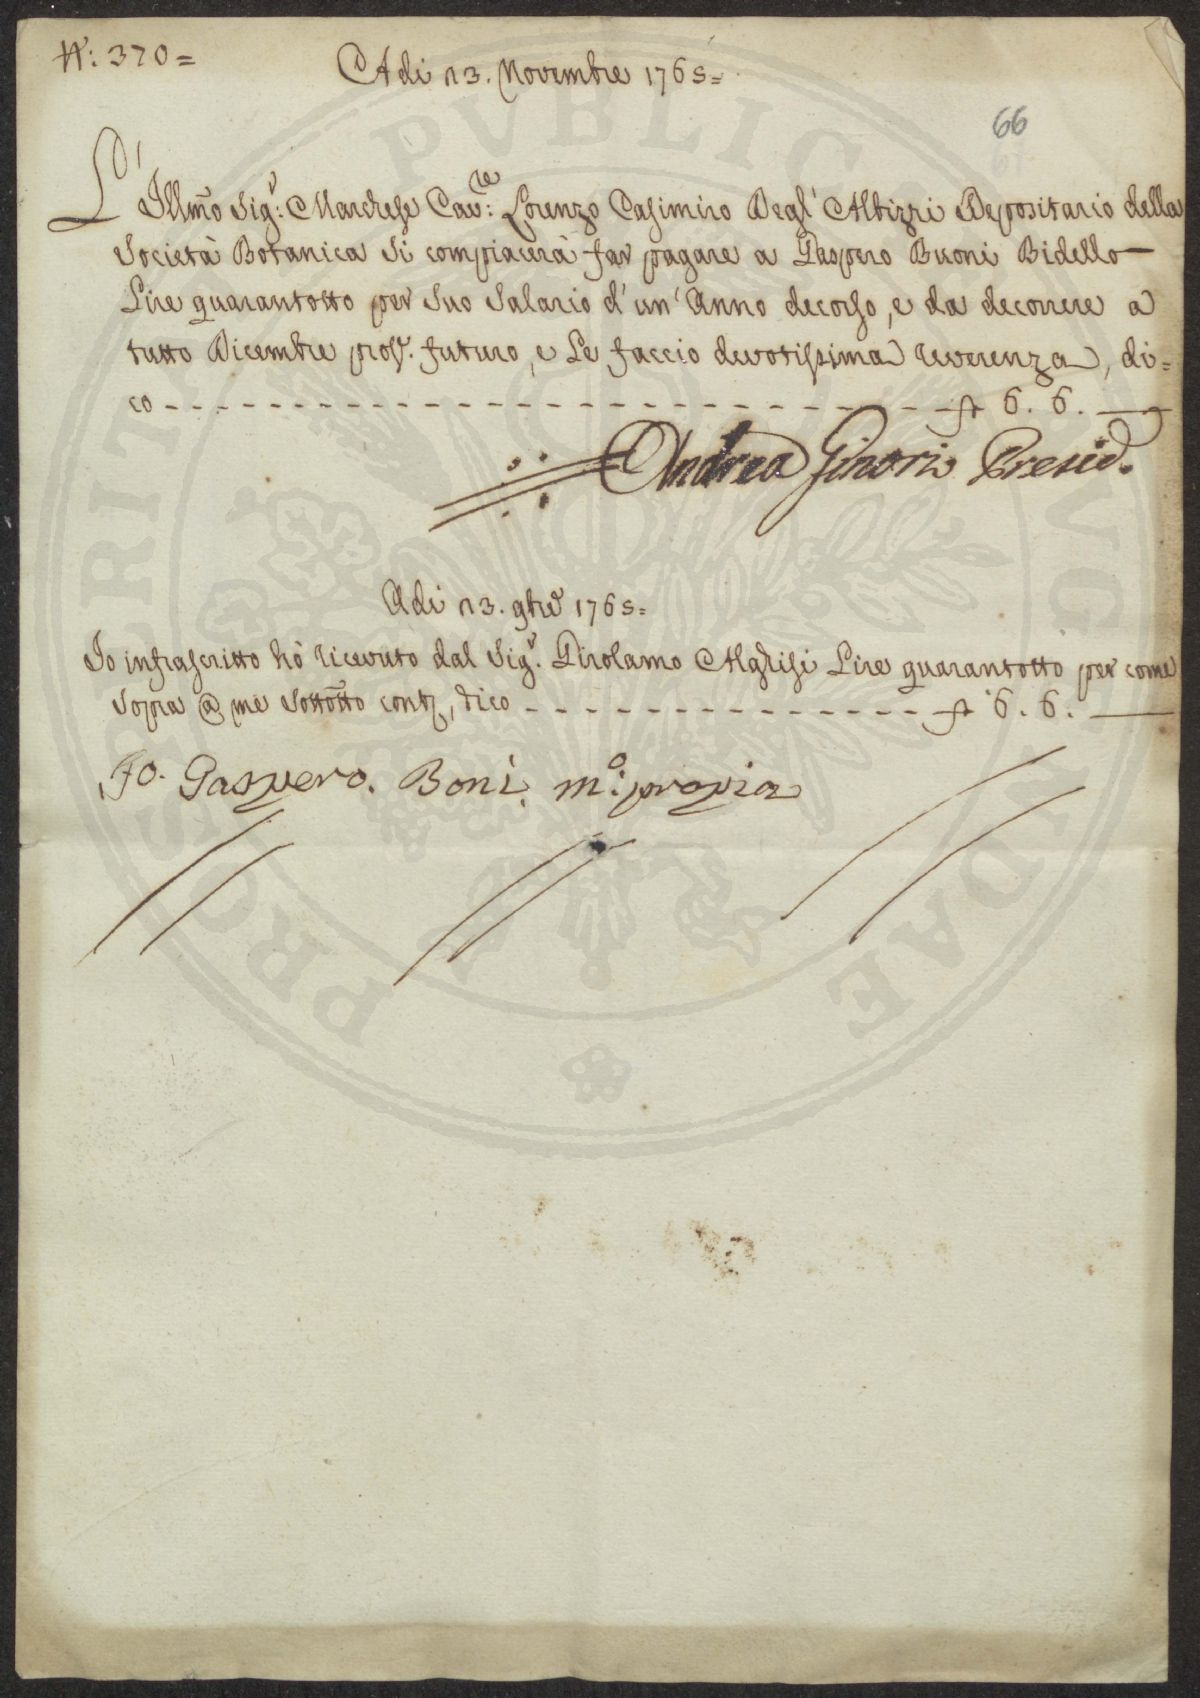 N: 370=
Adi 13. Novembre 1765=
66
L' Illmo Sigr: Marchese Cavre: Lorenzo Casimiro Degl' Albizzi Depositario della
Società Botanica Si compiacerà far pagare a Gaspero Buoni Bidello
Lire quarantotto per Suo Salario d' un' Anno decorso, e da decorrere a
tutto Dicembre pross. futuro, e Le faccio devotissima reverenza, di=
co - - - - - - - - - - - - - - - 6. 6. —
Andrea Ginori Presid.
Adi 13. 9bre 1765=
Io infrascritto hò ricevuto dal Sigr. Girolamo Alghisi Lire quarantotto per come
Sopra @ me Sottotto conti, dico - - - - - - - - - 6. 6. —
Io. Gaspero. Boni. mo: propia
PROSPERITATI PVBLICAE AVGENDAE